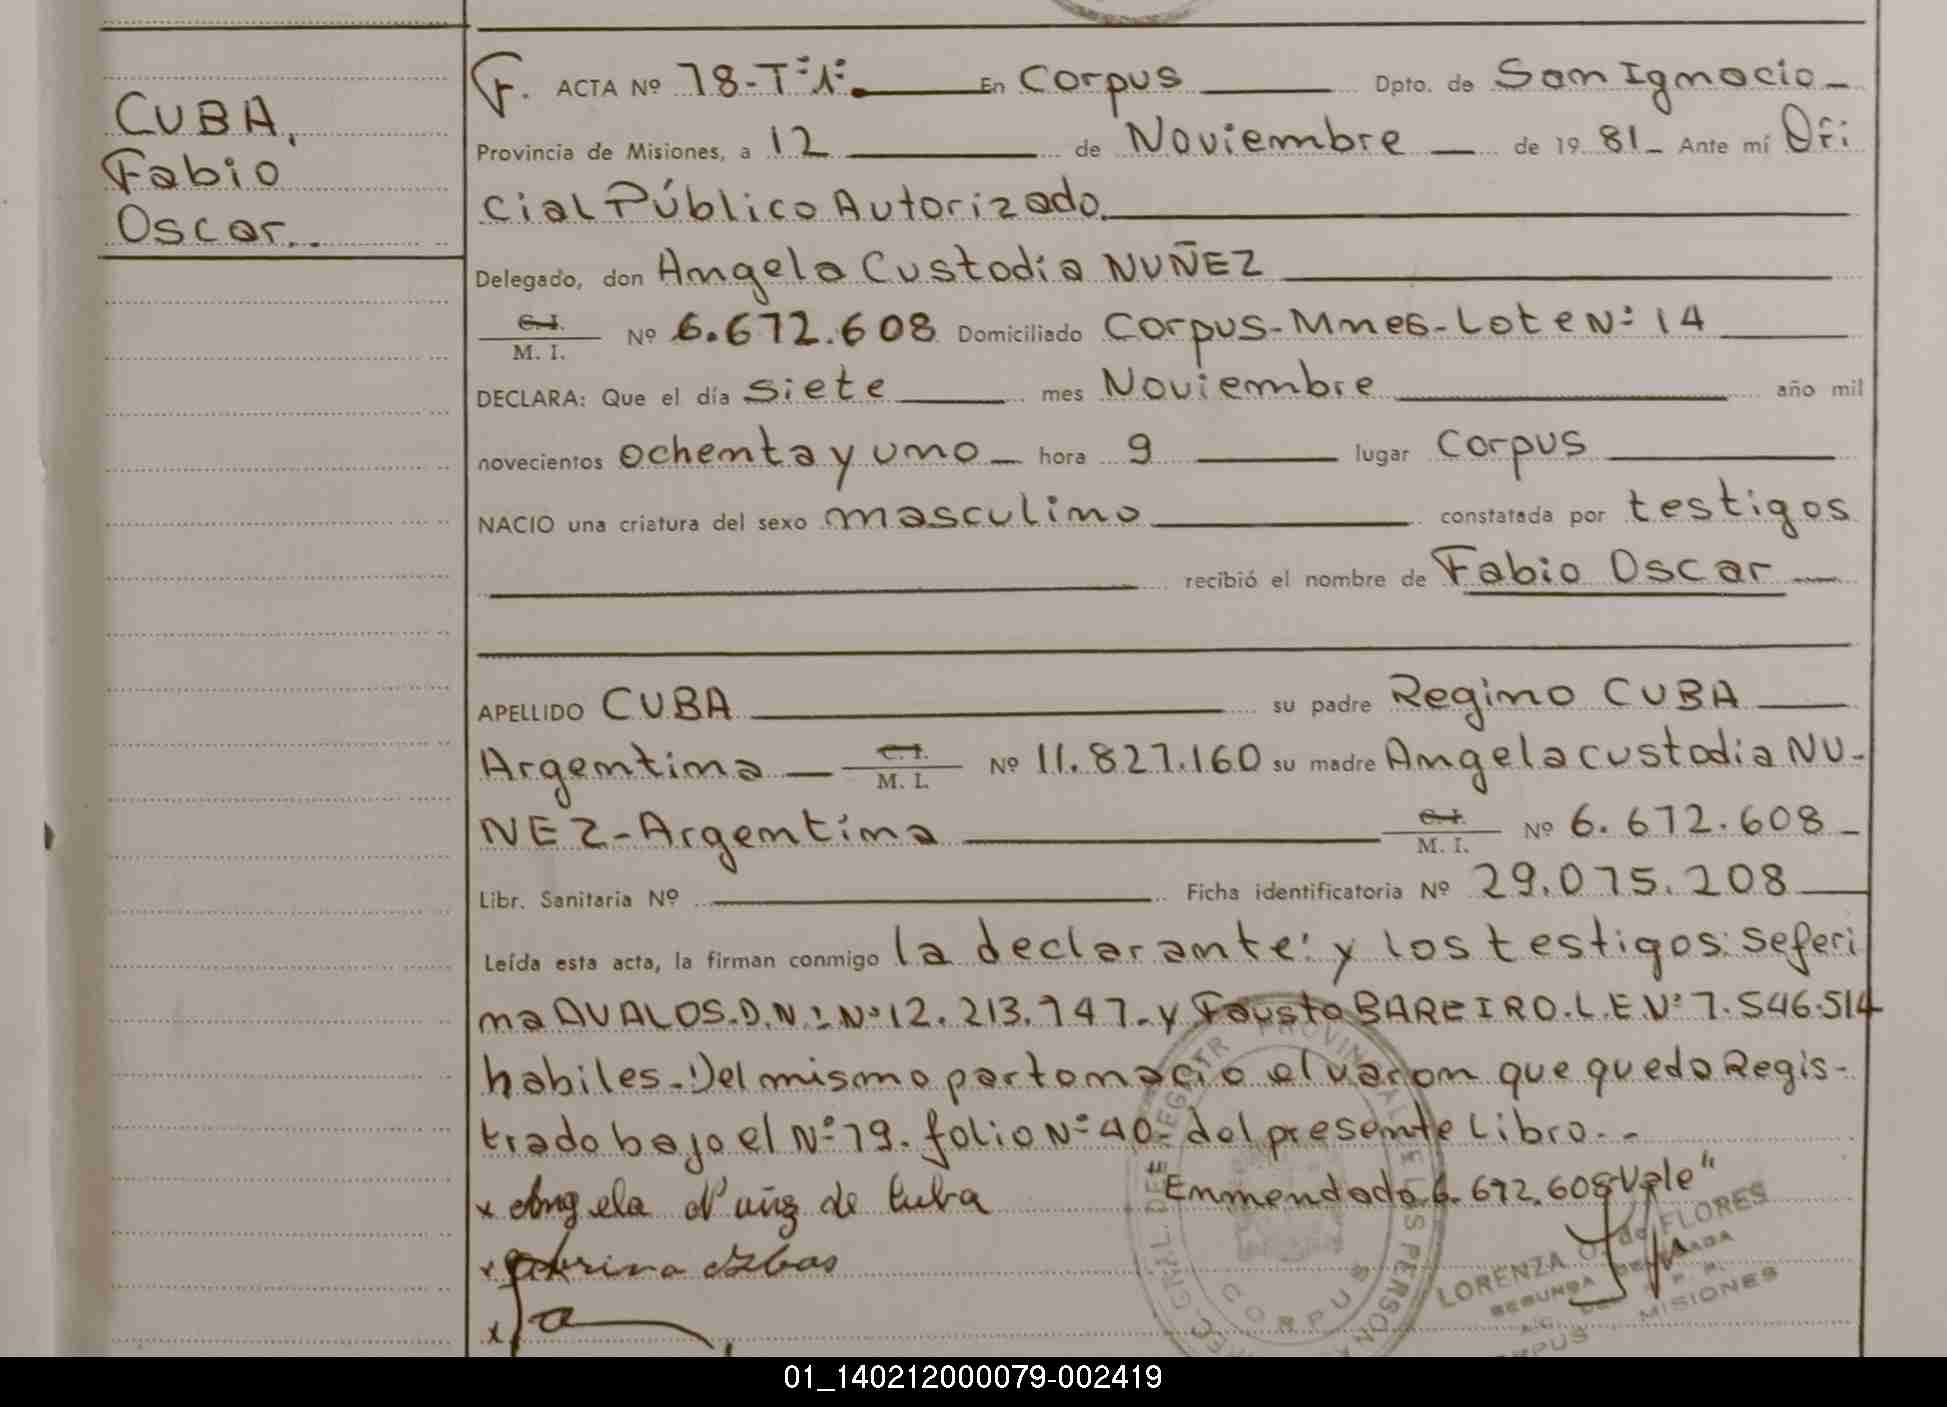 CUBA,
Fabio
Oscar..
F. ACTA Nº 78-Tº1º. En Corpus Dpto. de San Ignacio
Provincia de Misiones, a 12 de Noviembre de 1981 Ante mí Ofi
cial Público Autorizado.
Delegado, don Angela Custodia NUÑEZ
C.I.
M. I. Nº 6.672.608 Domiciliado Corpus-Mnes-Lote Nº 14
DECLARA: Que el día siete mes Noviembre año mil
novecientos ochenta y uno hora 9 lugar Corpus
NACIO una criatura del sexo masculino constatada por testigos
recibió el nombre de Fabio Oscar
APELLIDO CUBA su padre Regino CUBA
Argentina C.I. M. I. Nº 11.827.160 su madre Angela Custodia NU-
NEZ-Argentina C.I. M. I. Nº 6.672.608
Libr. Sanitaria Nº Ficha identificatoria Nº 29.075.208
Leída esta acta, la firman conmigo la declarante: y los testigos: Seferi
na AVALOS.D.N.I Nº 12.213.747.y Fausto BAREIRO.L.E.Nº 7.546.514
habiles.Del mismo parto nacio el varon que quedo Regis-
trado bajo el Nº 79. folio Nº 40- del presente Libro.-
Enmendado 6.672.608 Vale"
x Angela Nuñz de Cuba
LORENZA O. de FLORES
SEGUNDA
MISIONES
CORPUS
01_140212000079-002419